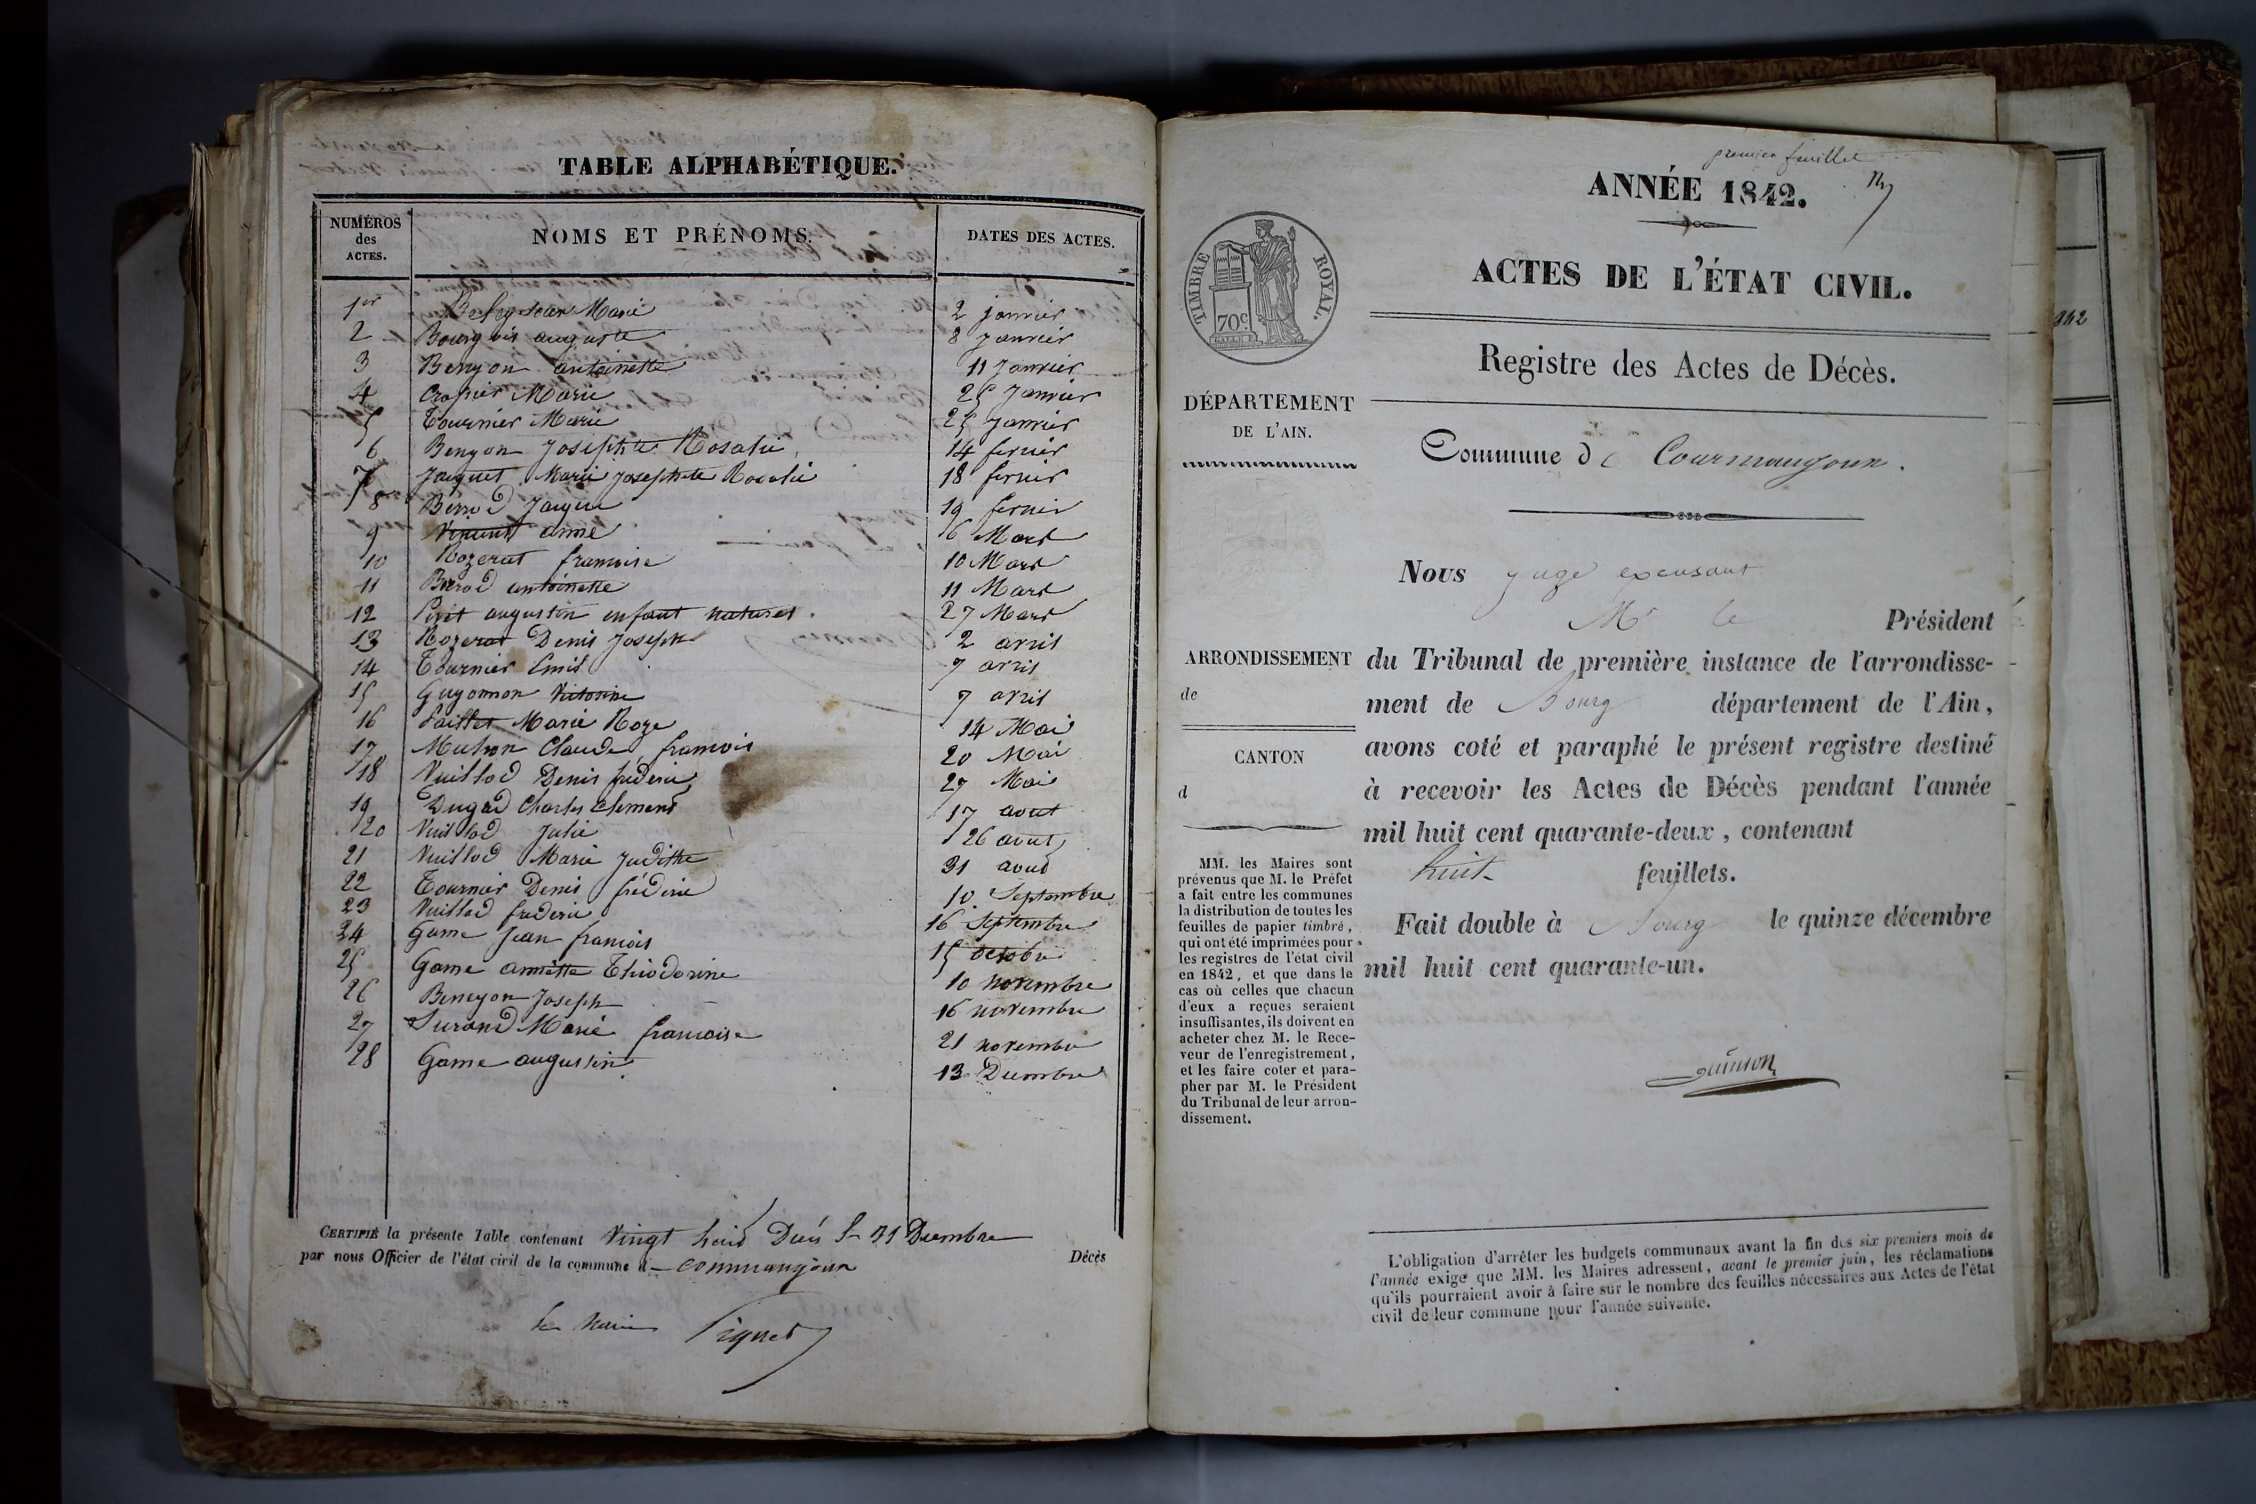 TABLE ALPHABÉTIQUE.
NUMÉROS des ACTES. NOMS ET PRÉNOMS. DATES DES ACTES.
1er Marie 2 janvier
2 Bourgois auguste 8 janvier
3 Benyon antoinette 11 Janvier
4 Marie 25 Janvier
5 Tournier Marie 25 Janvier
6 Benyon Josephte Rosalie 14 fevrier
7 Jaquet Marie Josephte Rosalie 18 fevrier
8 Berrod Jaque 19 fevrier
9 Vincent anne 6 Mars
10 Rozerat francoise 10 Mars
11 Berrod antoinette 11 Mars
12 Petit augustin enfant naturel 27 Mars
13 Rozerat Denis Joseph 2 avril
14 Tournier Emil 7 avril
15 Guyonnon Victorine 7 avril
16 Marie Roze 14 Mai
17 Claude francois 20 Mai
18 Vuillod Denis frederic 27 Mai
19 Dugad Charles Clement 17 aout
20 Vuillod Julie 26 aout
21 Vuillod Marie Judithe 31 aout
22 Tournier Denis fréderic 10 Septembre
23 Vuillod frederic 16 Septembre
24 Game Jean francois 15 octobre
25 Game annette Théodorine 10 novembre
26 Beneyon Joseph 16 novembre
27 Durand Marie francoise 21 novembre
28 Game augustin 13 Decembre
CERTIFIÉ la présente Table contenant Vingt huit Décés le 31 Decembre
par nous Officier de l'état civil de la commune d courmangoux Décès
le Maire Piquet
premier feuillet
ANNÉE 1842.
TIMBRE ROYAL.
70c.
ACTES DE L'ÉTAT CIVIL.
Registre des Actes de Décès.
DÉPARTEMENT
DE L'AIN.
Commune de Courmangoux.
Nous juge excusant
Mr le Président
ARRONDISSEMENT
de
CANTON
d
du Tribunal de première instance de l'arrondisse-
ment de Bourg département de l'Ain,
avons coté et paraphé le présent registre destiné
à recevoir les Actes de Décès pendant l'année
mil huit cent quarante-deux, contenant
huit feuillets.
Fait double à Bourg le quinze décembre
mil huit cent quarante-un.
MM. les Maires sont
prévenus que M. le Préfet
a fait entre les communes
la distribution de toutes les
feuilles de papier timbré,
qui ont été imprimées pour
les registres de l'état civil
en 1842, et que dans le
cas où celles que chacun
d'eux a reçues seraient
insuffisantes, ils doivent en
acheter chez M. le Rece-
veur de l'enregistrement,
et les faire coter et para-
pher par M. le Président
du Tribunal de leur arron-
dissement.
L'obligation d'arrêter les budgets communaux avant la fin des six premiers mois de
l'année exige que MM. les Maires adressent, avant le premier juin, les réclamations
qu'ils pourraient avoir à faire sur le nombre des feuilles nécessaires aux Actes de l'état
civil de leur commune pour l'année suivante.